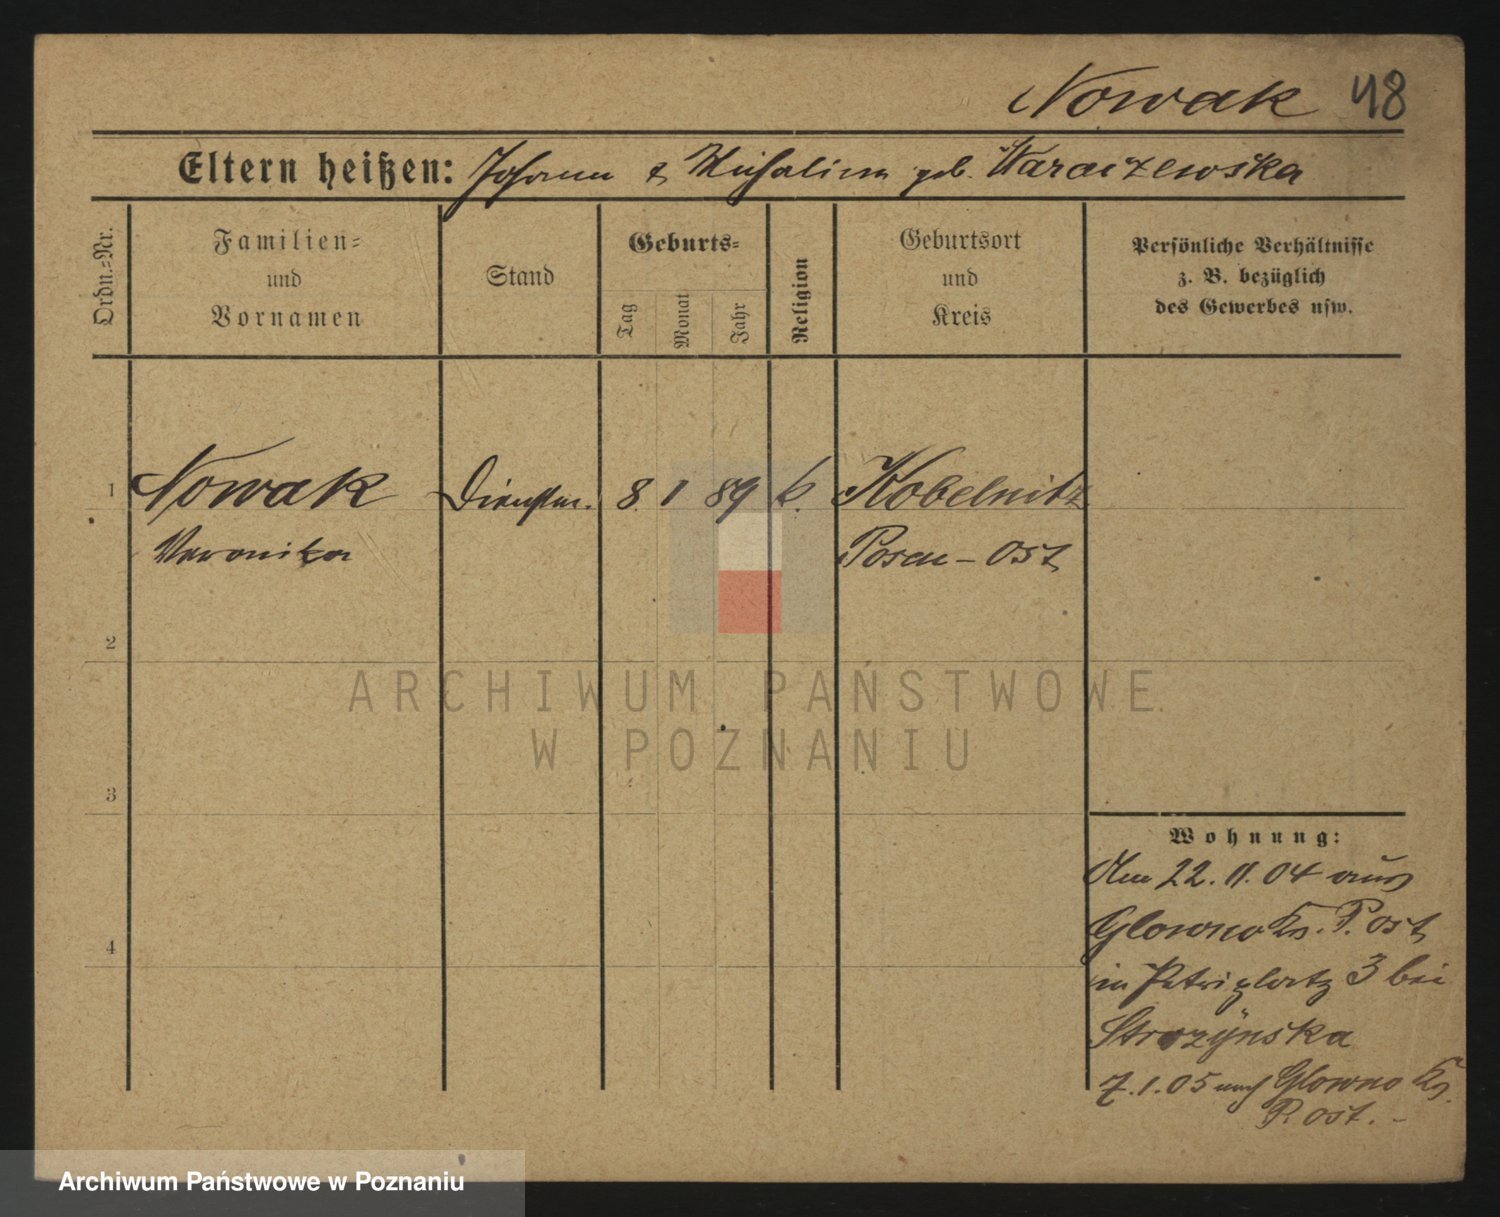 Nowak 48
Eltern heißen: Johann & Michalina geb. Waraczewska
Ordn.=Nr.
Familien=
und
Vornamen
Stand
Geburts=
Tag
Monat
Jahr
Religion
Geburtsort
und
Kreis
Persönliche Verhältnisse
z. B. bezüglich
des Gewerbes usw.
1 Nowak Dienstm. 8. 1 89 k. Kobelnitz
Veronika Posen - Ost
2
3
4
Wohnung:
Am 22. 11. 04 aus
Glowno Kr. P. Ost
in Petriplatz 3 bei
Strozÿnska
7. 1. 05 nach Glowno Kr.
P. Ost. -
ARCHIWUM PAŃSTWOWE
W POZNANIU
Archiwum Państwowe w Poznaniu